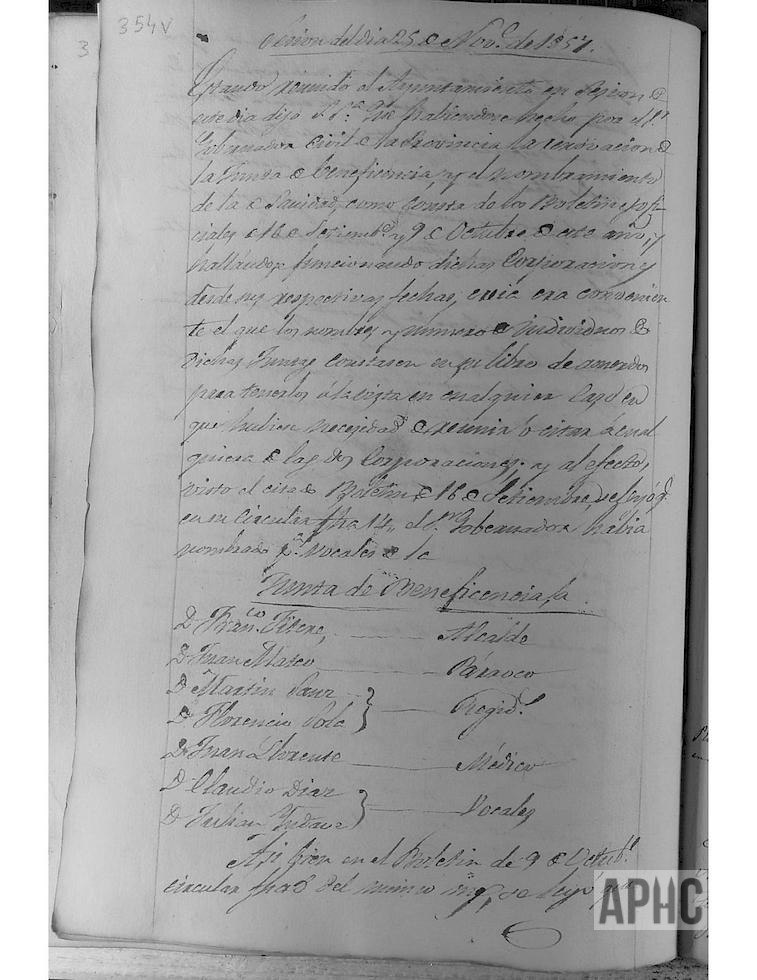 354v
3
Sesion del dia 25 de Nov.e de 1857.
Estando reunido el Ayuntamiento en Sesion de
este dia dijo el S.r Que habiendose hecho por el S.r
Gobernador Civil de la Provincia la renovacion de
la Junta de beneficencia, y el nombramiento
de la de Sanidad, como consta de los Boletines ofi-
ciales de 16 de Setiembre y 9 de Octubre de este año, y
hallandose funcionando dichas Corporaciones
desde sus respectivas fechas, creia era convenien
te el que los nombres y numero de individuos de
dichas Juntas constasen en su libro de acuerdos
para tenerlos á la vista en cualquier caso en
que hubiere necesidad de reunir o citar á cual
quiera de las dos Corporaciones; y al efecto,
visto el citado Boletin de 16 de Setiembre, se leyó q.e
en su circular fha 14, el S.r Gobernador habia
nombrado p.a Vocales de la
Junta de Beneficencia, á
D. Fran.co Alcalde
D. Juan Mateo Párroco
D. Martin Sanz
D. Florencio Sola Regid.s
D. Juan Llorente Médico
D. Claudio Diaz
D. Julian Vocales
Asi bien en el Boletin de 9 de Octub.e
circular fhad del mismo se leyo que
APHC